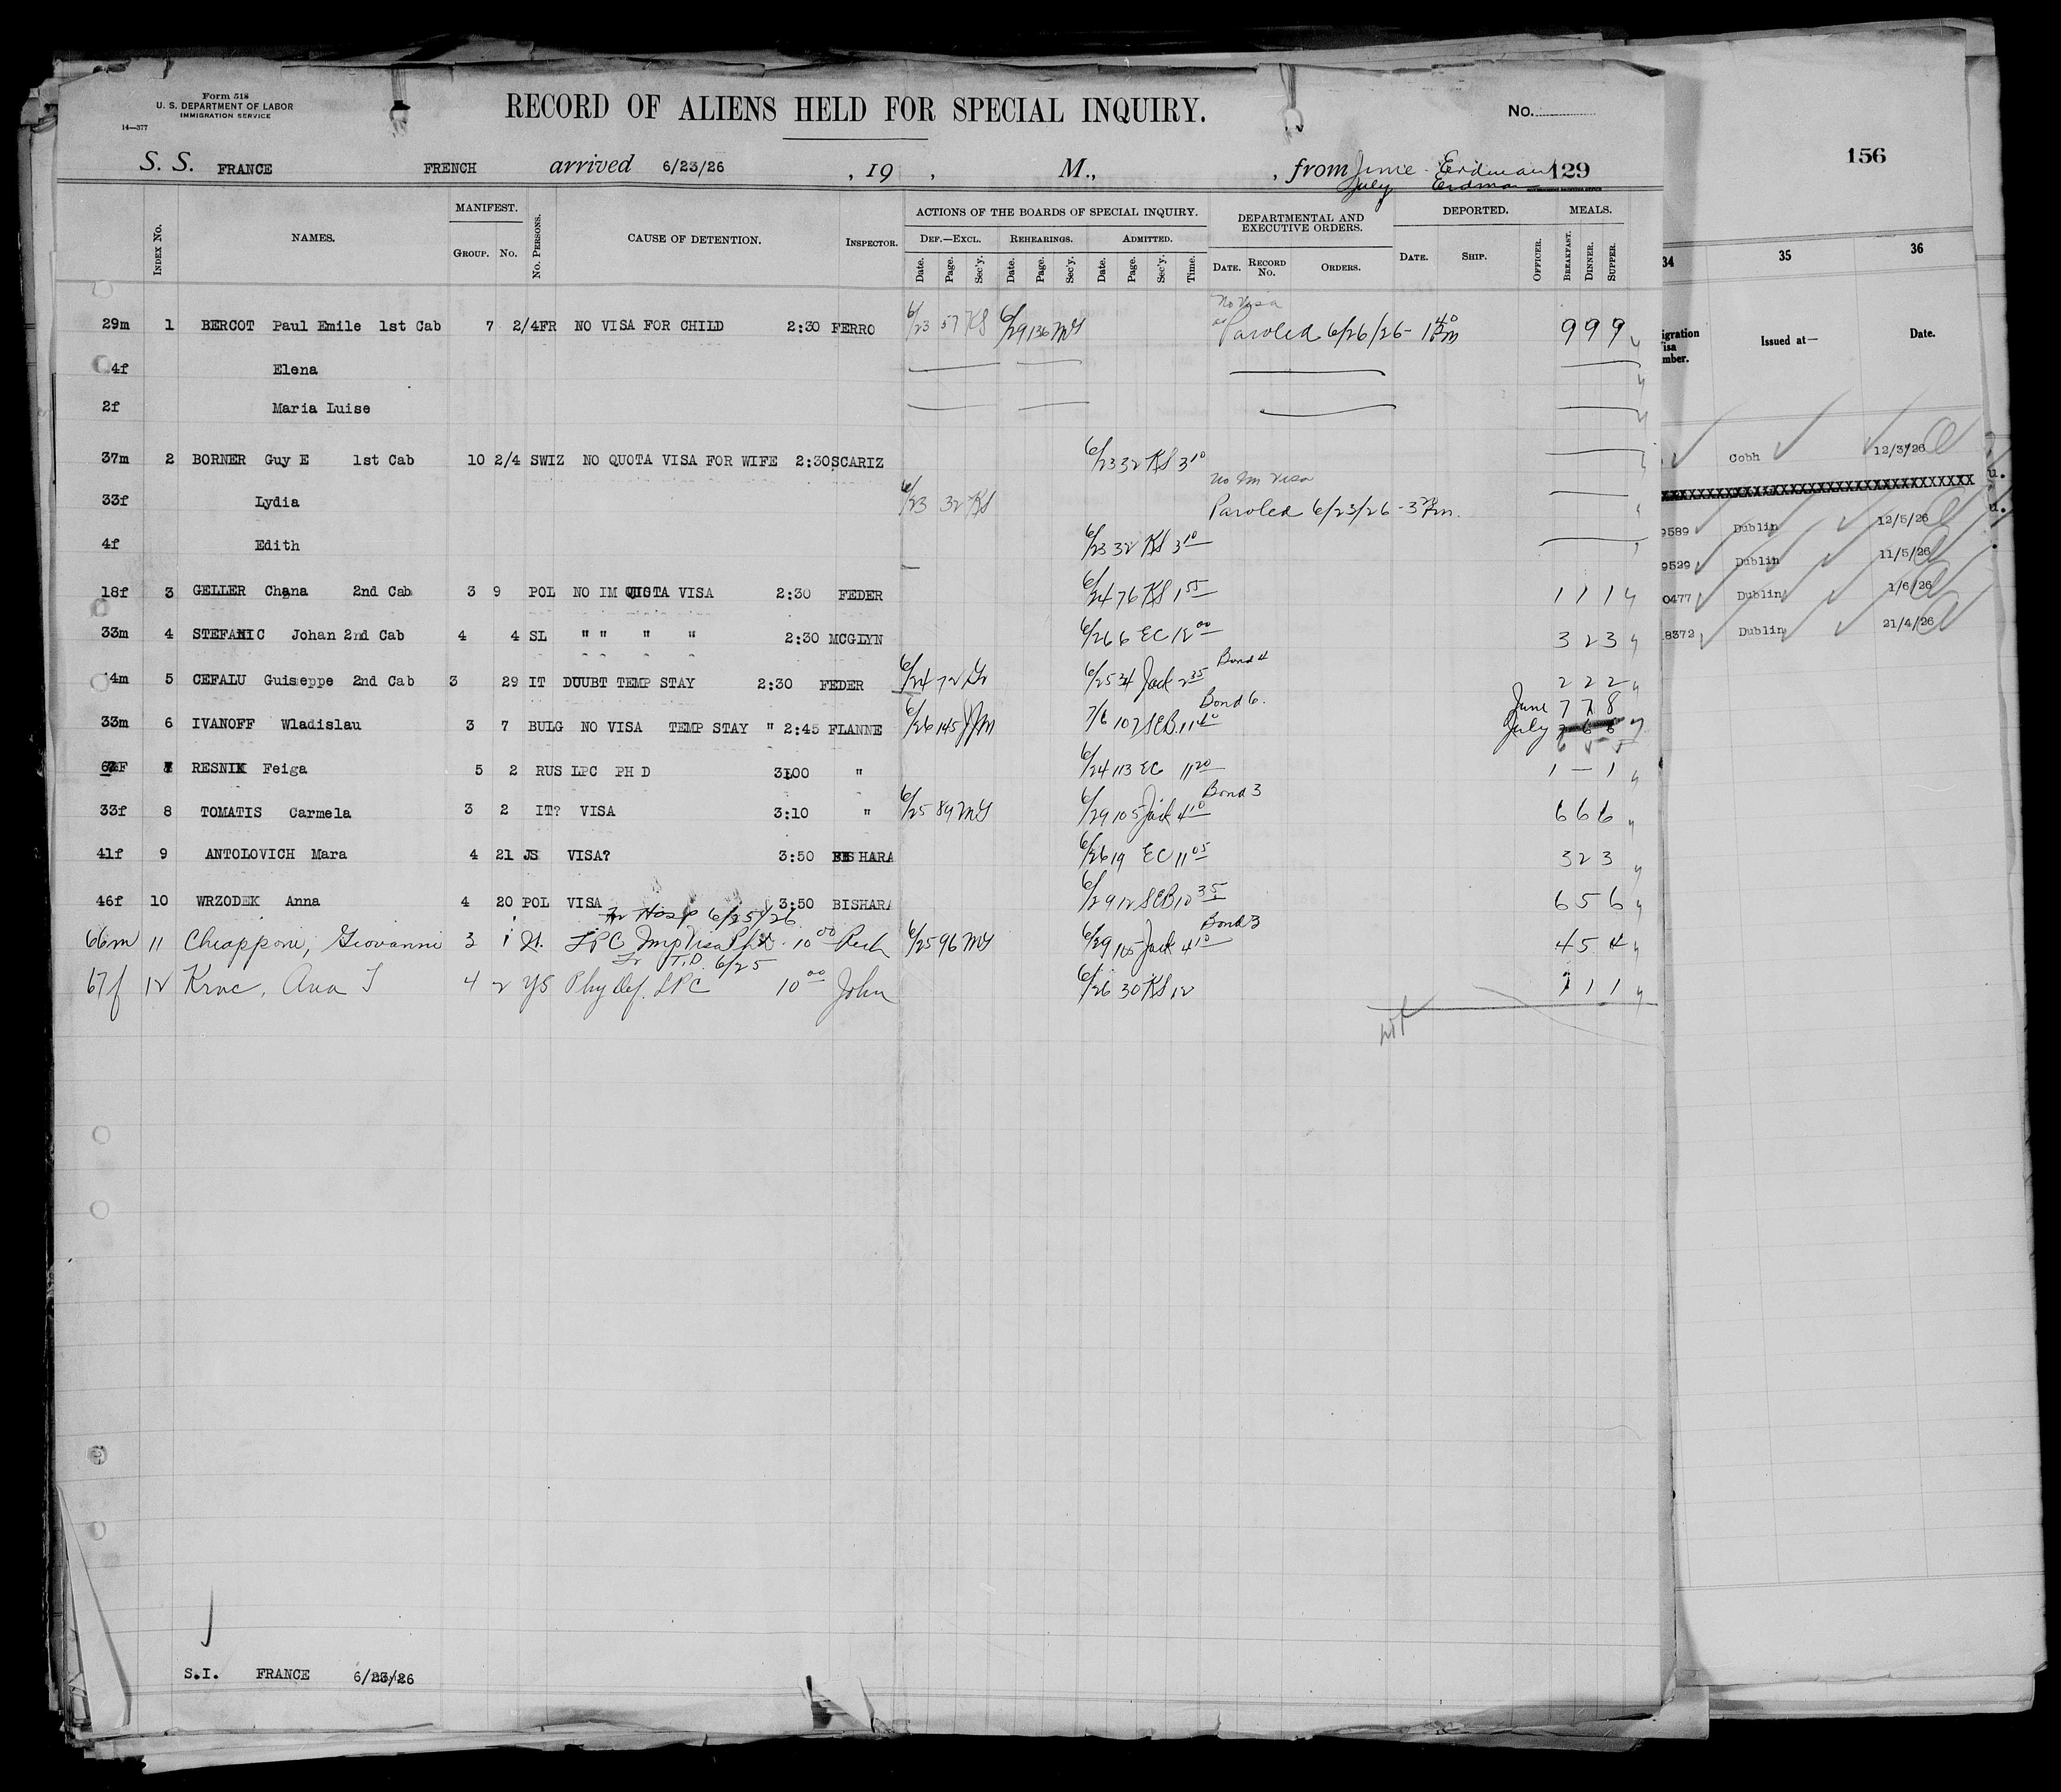 Form 518
U. S. DEPARTMENT OF LABOR
IMMIGRATION SERVICE
14—377
RECORD OF ALIENS HELD FOR SPECIAL INQUIRY.
No.
S. S. FRANCE FRENCH arrived 6/23/26 , 19 , M., , from June Erdman 129
July Erdman
MANIFEST. ACTIONS OF THE BOARDS OF SPECIAL INQUIRY. DEPARTMENTAL AND EXECUTIVE ORDERS. DEPORTED. MEALS.
Index No. NAMES. GROUP. No. No. Persons. CAUSE OF DETENTION. INSPECTOR. DEF.—EXCL. REHEARINGS. ADMITTED.
Date. Page. Sec'y. Date. Page. Sec'y. Date. Page. Sec'y. Time. DATE. RECORD No. ORDERS. DATE. SHIP. OFFICER. BREAKFAST. DINNER. SUPPER.
No Visa
29m 1 BERCOT Paul Emile 1st Cab 7 2/4FR NO VISA FOR CHILD 2:30 FERRO 6/23 57 KS 6/29 136 MG Paroled 6/26/26 - 1 40 Pm 9 9 9
4f Elena
2f Maria Luise
37m 2 BORNER Guy E 1st Cab 10 2/4 SWIZ NO QUOTA VISA FOR WIFE 2:30 SCARIZ 6/23 32 KS 3 10
No Im Visa
33f Lydia 6/23 32 KS Paroled 6/23/26 - 3 Pm.
4f Edith 6/23 32 KS 3 10
18f 3 GELLER Chana 2nd Cab 3 9 POL NO IM QUOTA VISA 2:30 FEDER 6/24 76 KS 1 55 1 1 1
33m 4 STEFANIC Johan 2nd Cab 4 4 SL " " " " 2:30 MCGLYN 6/26 6 EC 12 00 3 2 3
44m 5 CEFALU Guiseppe 2nd Cab 3 29 IT DOUBT TEMP STAY 2:30 FEDER 6/24 72 6/25 34 Jack 2 35 Bond 4 2 2 2
33m 6 IVANOFF Wladislau 3 7 BULG NO VISA TEMP STAY " 2:45 FLANNE 6/26 145 7/6 107 SEB 11 40 Bond 6. June 7 7 8
July
RESNIK Feiga 5 2 RUS LPC PH D 3:00 " 6/24 113 EC 11 20 1 — 1
33f 8 TOMATIS Carmela 3 2 IT? VISA 3:10 " 6/25 89 MG 6/29 105 Jack 4 10 Bond 3 6 6 6
41f 9 ANTOLOVICH Mara 4 21 JS VISA? 3:50 BISHARA 6/26 19 EC 11 05 3 2 3
46f 10 WRZODEK Anna 4 20 POL VISA 3:50 BISHARA 6/29 12 SEB 10 35 6 5 6
Hosp 6/25/26
66m 11 Chiappone, Giovanni 3 1 It. LPC Imp Visa 10 00 6/25 96 MG 6/29 105 Jack 4 10 Bond 3 4 5 4
T.D. 6/25
67f 12 Krnc, Ana 4 2 YS Phy Def. LPC 10 00 John 6/26 30 KS 12 1 1 1
S.I. FRANCE 6/23/26
156
34 35 36
igration
isa
mber.
Issued at—
Date.
Cobh 12/3/26
XXXXXXXXXXXXXXXXXXXXXXXXXXXXXXXXXXX
9589 Dublin 12/5/26
9529 Dublin 11/5/26
0477 Dublin 1/6/26
8372 Dublin 21/4/26
u.
u.